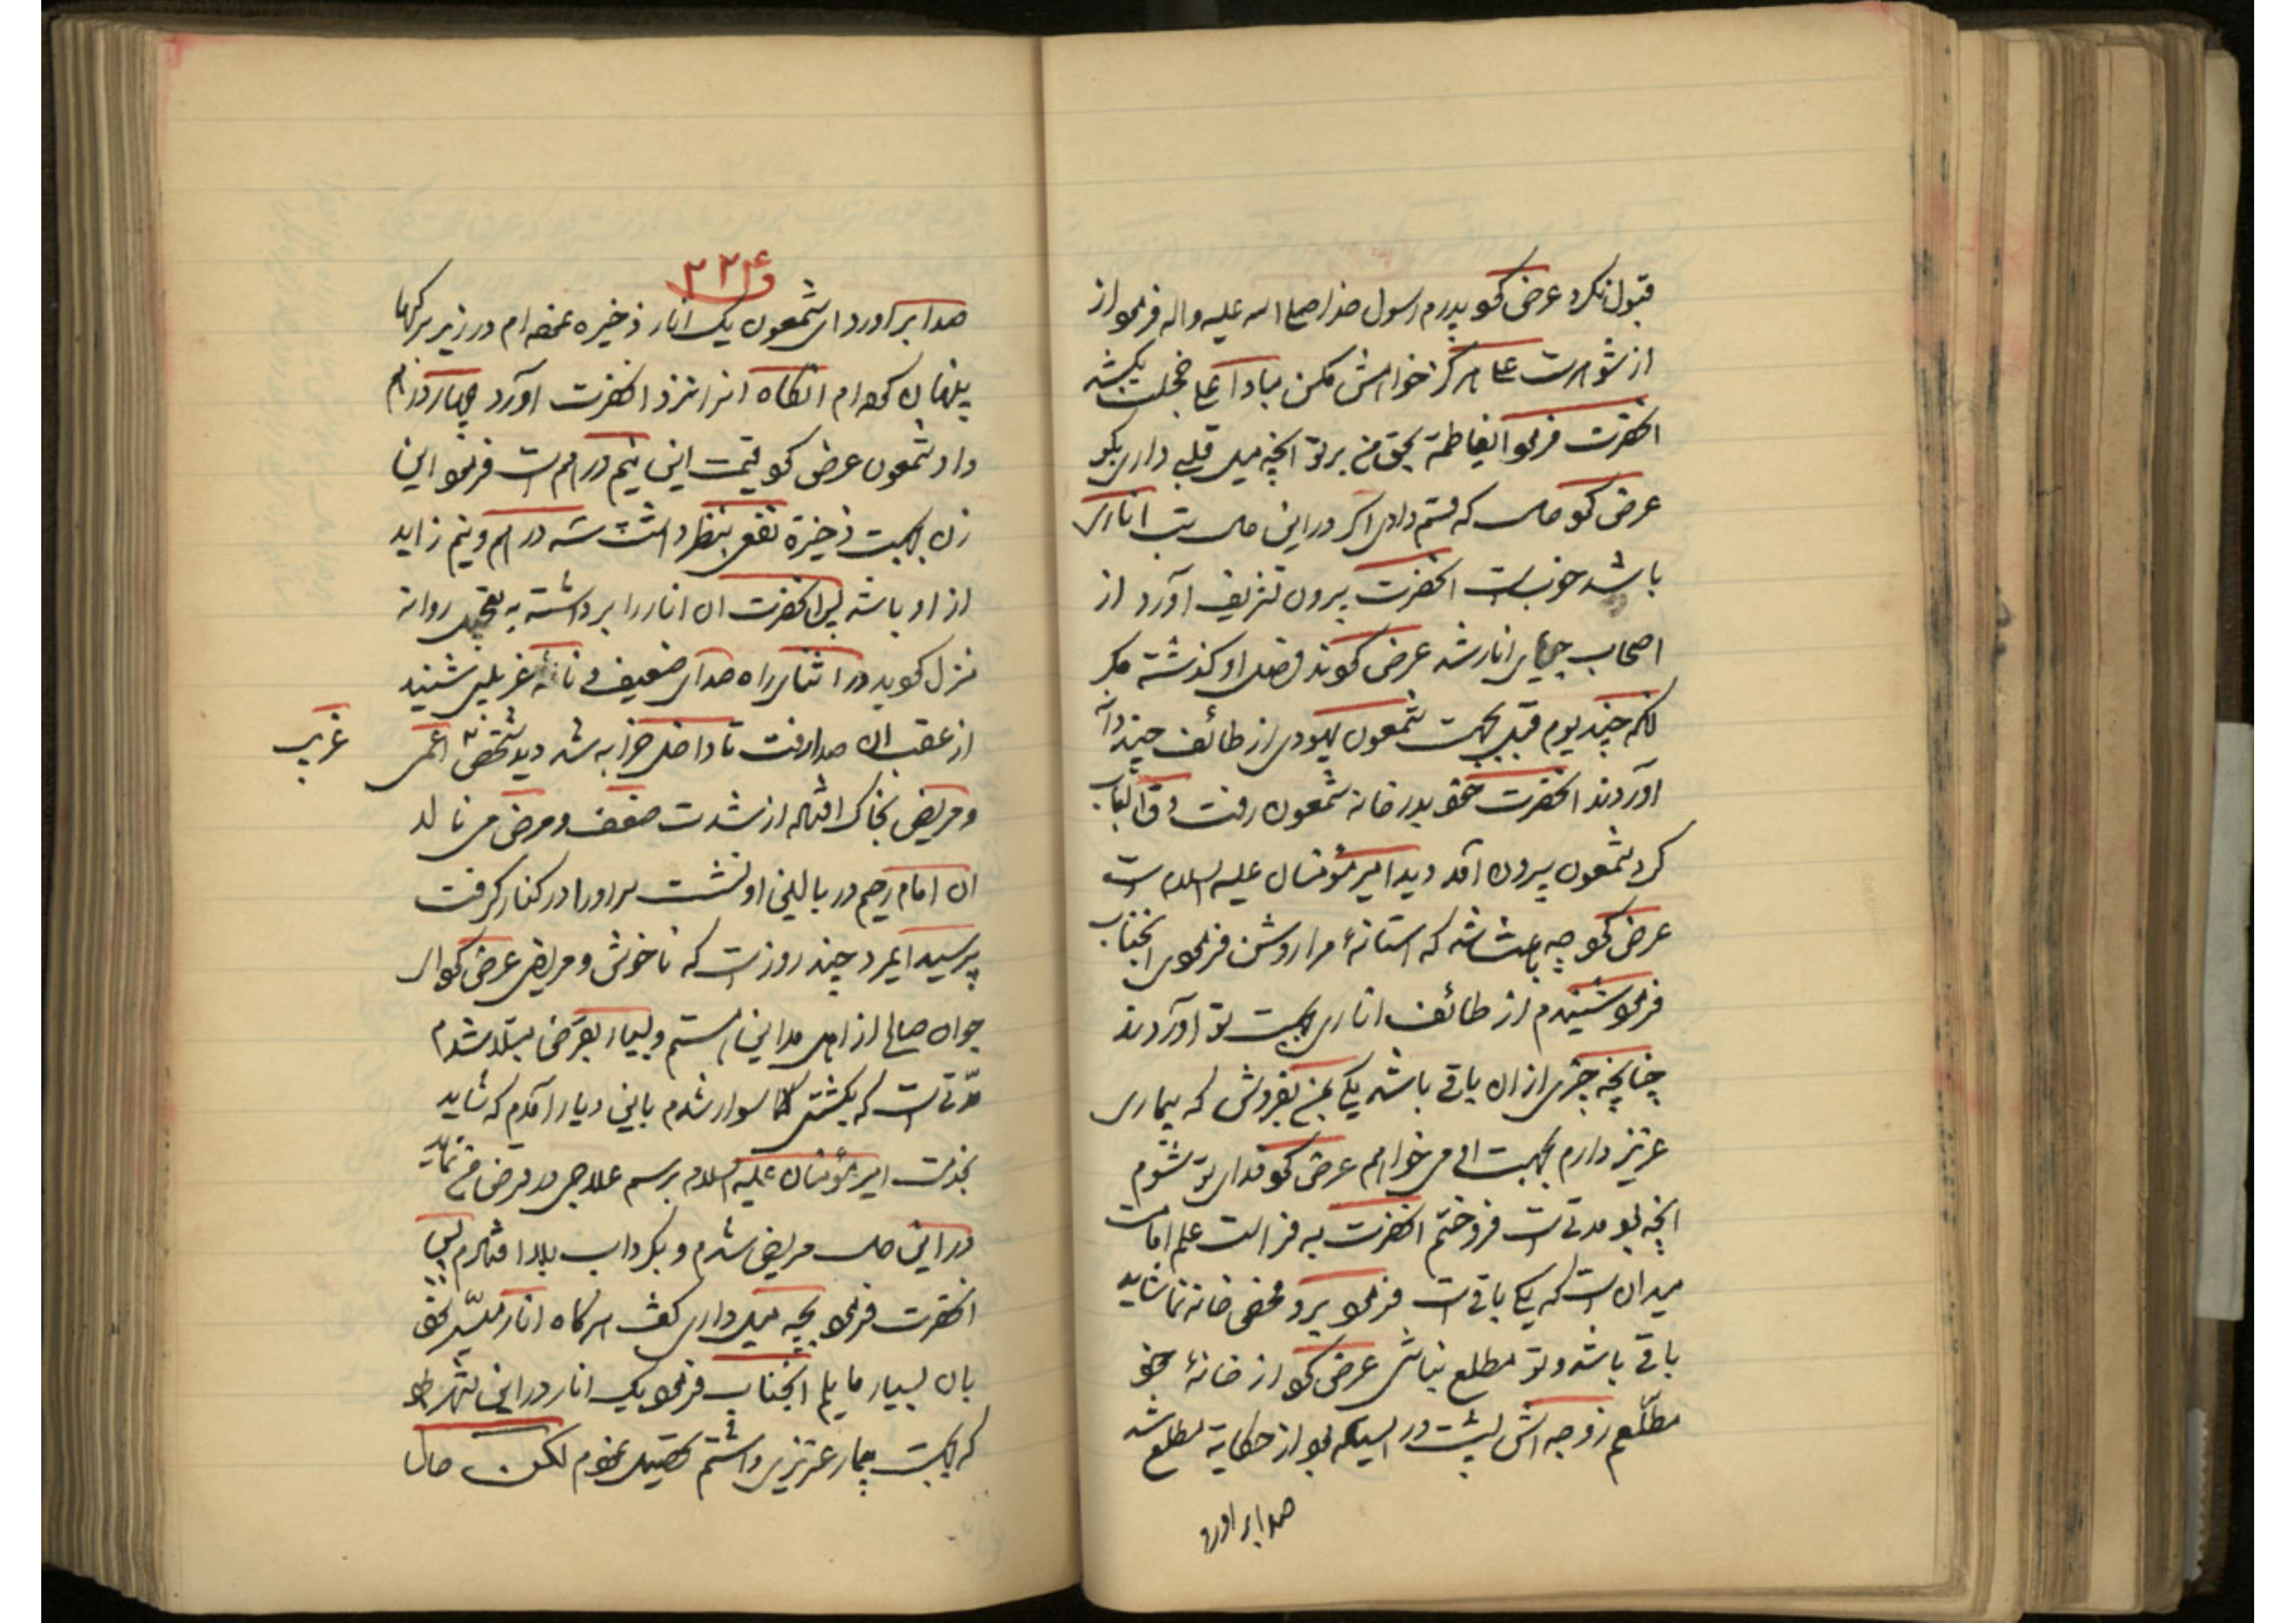 قبول نکرد عرض کرد پدرم رسول خدا صلی الله علیه واله فرمود از
از شوهرت علی هرگز خواهش مکن مبادا علی خجلت بکشد
انحضرت فرمود ایفاطمة بحق من بر تو انچه میل قلبی داری بگو
عرض کرد حال که قسم دادی اگر در این حال یک اناری
باشد خوبست انحضرت بیرون تشریف آورد از
اصحاب جویای انار شد عرض کردند فصل او گذشته مگر
انکه چند یوم قبل بجهت شمعون یهودی از طائف چند دانه
آوردند انحضرت خود بدر خانه شمعون رفت دق الباب
کرد شمعون بیرون آمد دید امیر مؤمنان علیه السلام است
عرض کرد چه باعث شد که استانهٔ مرا روشن فرمودی انجناب
فرمود شنیدم از طائف اناری بجهت تو آوردند
چنانچه چیزی از ان باقی باشد یکی بمن بفروش که بیماری
عزیز دارم بجهت او می خواهم عرض کرد فدای تو شوم
انچه بود مدتی است فروختم انحضرت به فراست علم امامت
میدانست که یکی باقی است فرمود برو تفحص خانه نما شاید
باقی باشد و تو مطلع نباشی عرض کرد از خانهٔ خود
مطّلعم زوجه اش پشت در ایستاده بود از حکایة مطلع شد
صدا بر اورد
۳۲۴
صدا بر آورد ای شمعون یک انار ذخیره نموده ام در زیر برگها
پنهان کرده ام انگاه انرا نزد انحضرت آورد چهار درهم
داد شمعون عرض کرد قیمت این نیم درهم است فرمود این
زن بجهت ذخیرة نفعی بنظر داشت سه درهم و نیم زاید
از او باشد پس انحضرت ان انار را برداشته به تعجیل روانه
منزل گردید در اثنای راه صدای ضعیف و نالهٔ غریبی شنید
از عقب ان صدا رفت تا داخل خرابه شد دید شخصی اعمی
غریب
و مریض بخاک افتاده از شدت ضعف و مرض می نالد
ان امام رحیم در بالین او نشست سر او را در کنار گرفت
پرسید ایمرد چند روز است که ناخوش و مریضی عرض کرد ای
جوان صالح از اهل مداین هستم و بسیار بقرض مبتلا شدم
مدّتی است که بکشتی سوار شدم باین دیار آمدم که شاید
بخدمت امیر مؤمنان علیه السلام برسم علاجی در قرض من نماید
در این حال مریض شدم و بگرداب بلا افتادم پس
انحضرت فرمود بچه میل داری گفت هرگاه انار میسّر بود
بان بسیار مایلم انجناب فرمود یک انار در این شهر بود
که بجهت بیمار عزیزی داشتم تحصیل نمودم لکن حالا